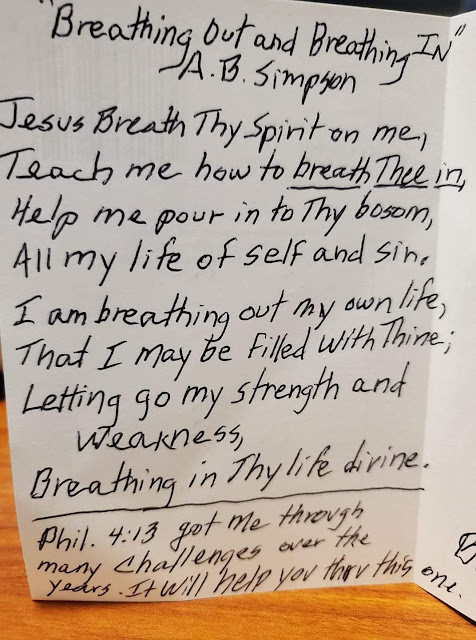 "Breathing Out and Breathing IN"
-A.B. Simpson
Jesus Breath Thy Spirit on me,
Teach me how to breath Thee in,
Help me pour in to Thy bosom,
All my life of self and sin.
I am breathing out my own life,
That I may be filled with Thine;
Letting go my strength and
weakness,
Breathing in Thy life divine.
Phil. 4:13 got me through
many challenges over the
years. It will help you thru this one.